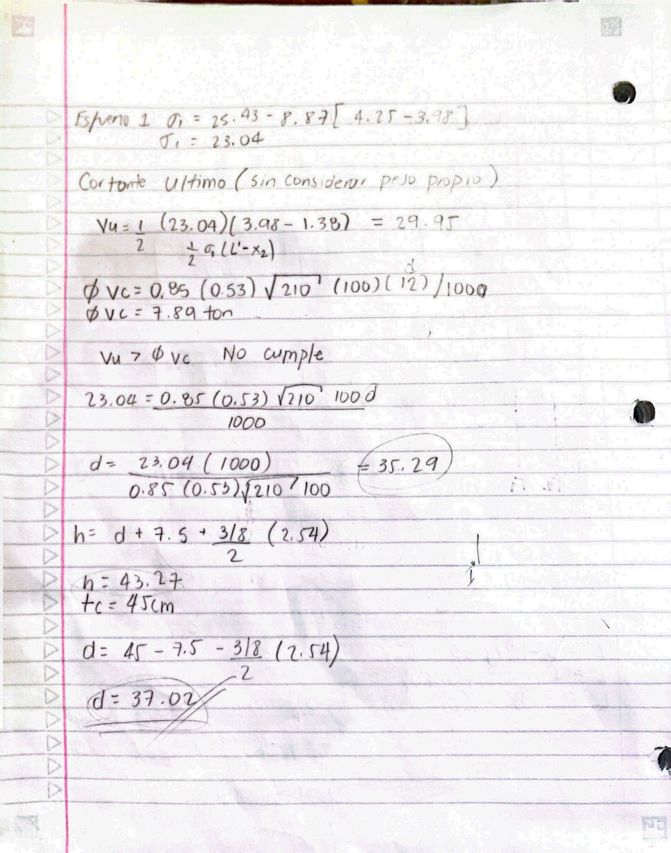 Esfuerzo 1 σ1 = 25.43 - 8.87[ 4.25 - 3.98 ]
σ1 = 23.04
Cortante Ultimo (sin considerar peso propio)
Vu = 1/2 (23.04)(3.98 - 1.38) = 29.95
1/2 σ1 (L' - x2)
d
∅ Vc = 0.85 (0.53) √210 (100)(12)/1000
∅ Vc = 7.89 ton
Vu > ∅ Vc No cumple
23.04 = 0.85 (0.53) √210 100d / 1000
d = 23.04 (1000) / 0.85 (0.53) √210 100 = 35.29
h = d + 7.5 + 3/8 / 2 (2.54)
h = 43.27
tc = 45cm
d = 45 - 7.5 - 3/8 / 2 (2.54)
d = 37.02